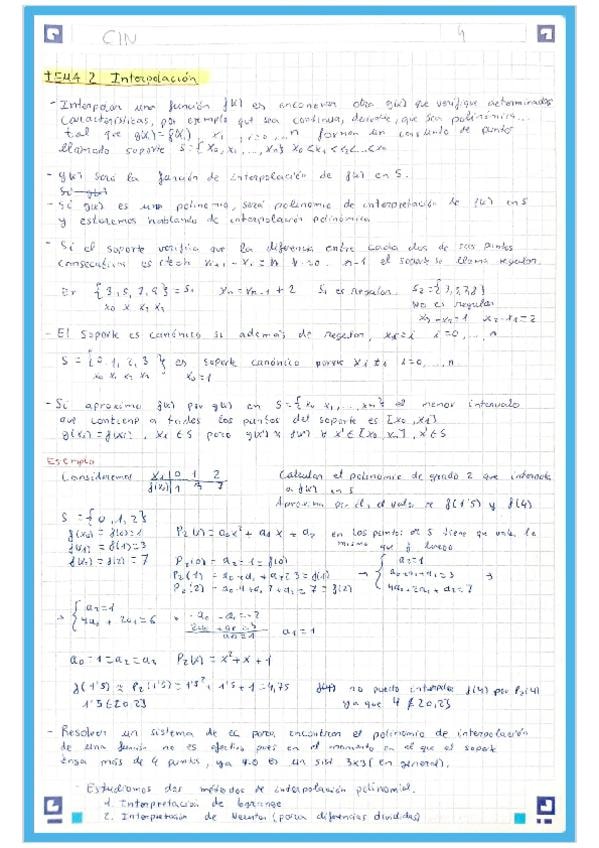 CIN 4
TEMA 2 Interpolación
- Interpolar una función f(x) es encontrar otra g(x) que verifique determinadas
características, por ejemplo que sea continua, derivable, que sea polinómica...
tal que g(xi) = f(xi), xi, i=0,...,n forman un conjunto de puntos
llamado soporte S = {x0, x1, ..., xn} x0<x1<x2<...<xn
- g(x) será la función de interpolación de f(x) en S.
Si g(x)
- Si g(x) es una polinomio, será polinomio de interpretación de f(x) en S
y estaremos hablando de interpolación polinómica
- Si el soporte verifica que la diferencia entre cada dos de sus puntos
consecutivos es n-1 el soporte se llama regular.
Ex {3, 5, 7, 9} = S1 xn = xn-1 + 2 S1 es regular. S2 =
no es regular
x1 - x0 = 1 x2 - x1 = 2
- El soporte es canónico si además de regular, xi = i i=0,...,n
S = {0, 1, 2, 3} es soporte canónico porque xi = i i=0,...,n
x0 x1 x2 x3
- Si aproximo f(x) por g(x) en S = {x0, x1, ..., xn} el menor intervalo
que contiene a todos los puntos del soporte es [x0, xn]
g(xi) = f(xi), xi ∈ S pero g(x') ≈ f(x') ∀ x' ∈ [x0, xn], x' ∉ S
Ejemplo
Consideremos xi | 0 1 2 Calcular el polinomio de grado 2 que interpola
f(xi) | 1 3 7 a f(x) en S
Aproxima por él, el valor de f(1'5) y f(4)
S = {0, 1, 2}
f(x0) = f(0) = 1 P2(x) = a0x² + a1x + a2 en los puntos de S tiene que valer lo
f(x1) = f(1) = 3 mismo que f luego
f(x2) = f(2) = 7 P2(0) = a2 = 1 = f(0) a2 = 1
P2(1) = a0 + a1 + a2 = 3 = f(1) → a0 + a1 + a2 = 3
P2(2) = a0·4 + a1·2 + a2 = 7 = f(2) 4a0 + 2a1 + a2 = 7
a2 = 1
4a0 + 2a1 = 6 -a0 - a1 = -2
a0 = 1 a1 = 1
a0 = 1 = a1 = a2 P2(x) = x² + x + 1
f(1'5) ≈ P2(1'5) = 1'5² + 1'5 + 1 = 4,75 f(4) no puedo interpolar f(4) por P2(4)
1'5 ∈ [0, 2] ya que 4 ∉ [0, 2]
- Resolver un sistema de ec para encontrar el polinomio de interpolación
de una función no es efectivo pues en el momento en el que el soporte
tenga más de 4 puntos, ya no es un sist 3x3 (en general).
- Estudiamos dos métodos de interpolación polinomial.
1. Interpretación de lagrange
2. Interpretación de Newton (para diferencias divididas)